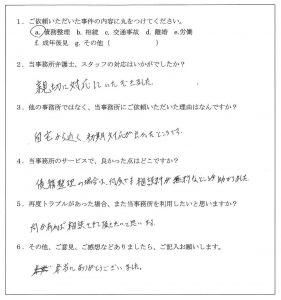 1. ご依頼いただいた事件の内容に丸をつけてください。
a. 債務整理 b. 相続 c. 交通事故 d. 離婚 e. 労働
f. 成年後見 g. その他（ ）
2. 当事務所弁護士、スタッフの対応はいかがでしたか？
親切に対応していただきました。
3. 他の事務所ではなく、当事務所にご依頼いただいた理由はなんですか？
自宅から近く 初期対応が良かったところです。
4. 当事務所のサービスで、良かった点はどこですか？
債務整理の場合は、何度でも相談料が無料なところが助かりました。
5. 再度トラブルがあった場合、また当事務所を利用したいと思いますか？
何かあれば相談させて頂きたいと思います。
6. その他、ご意見、ご感想などありましたら、ご記入お願いします。
本当にありがとうございました。